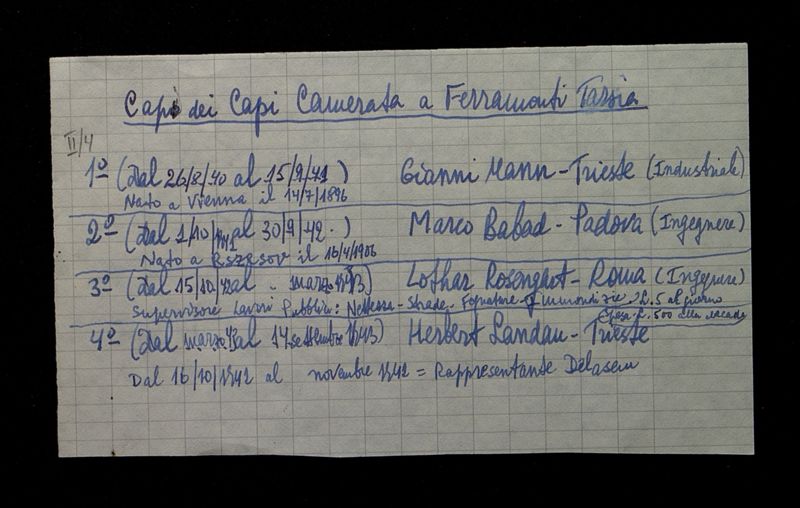 Capi dei Capi Camerata a Ferramonti Tarsia
II/4
1º (Dal 26/8/40 al 15/9/41) Gianni Mann - Trieste (Industriale)
Nato a Vienna il 14/7/1896
2º (Dal 1/10/1941 al 30/9/42.) Marco Babad - Padova (Ingegnere)
Nato a Rszesov il 16/4/1906
3º (Dal 15/10/42 al . marzo 1943) Lothar Rosengart - Roma (Ingegnere)
Supervisore Lavori Pubblici: Nettezza - Strade - Fognature - Immondizie £.5 al giorno
£. 500 alla
4º (Dal marzo 43 al 14 settembre 1943) Herbert Landau - Trieste
Dal 16/10/1942 al novembre 1942 = Rappresentante Delasem